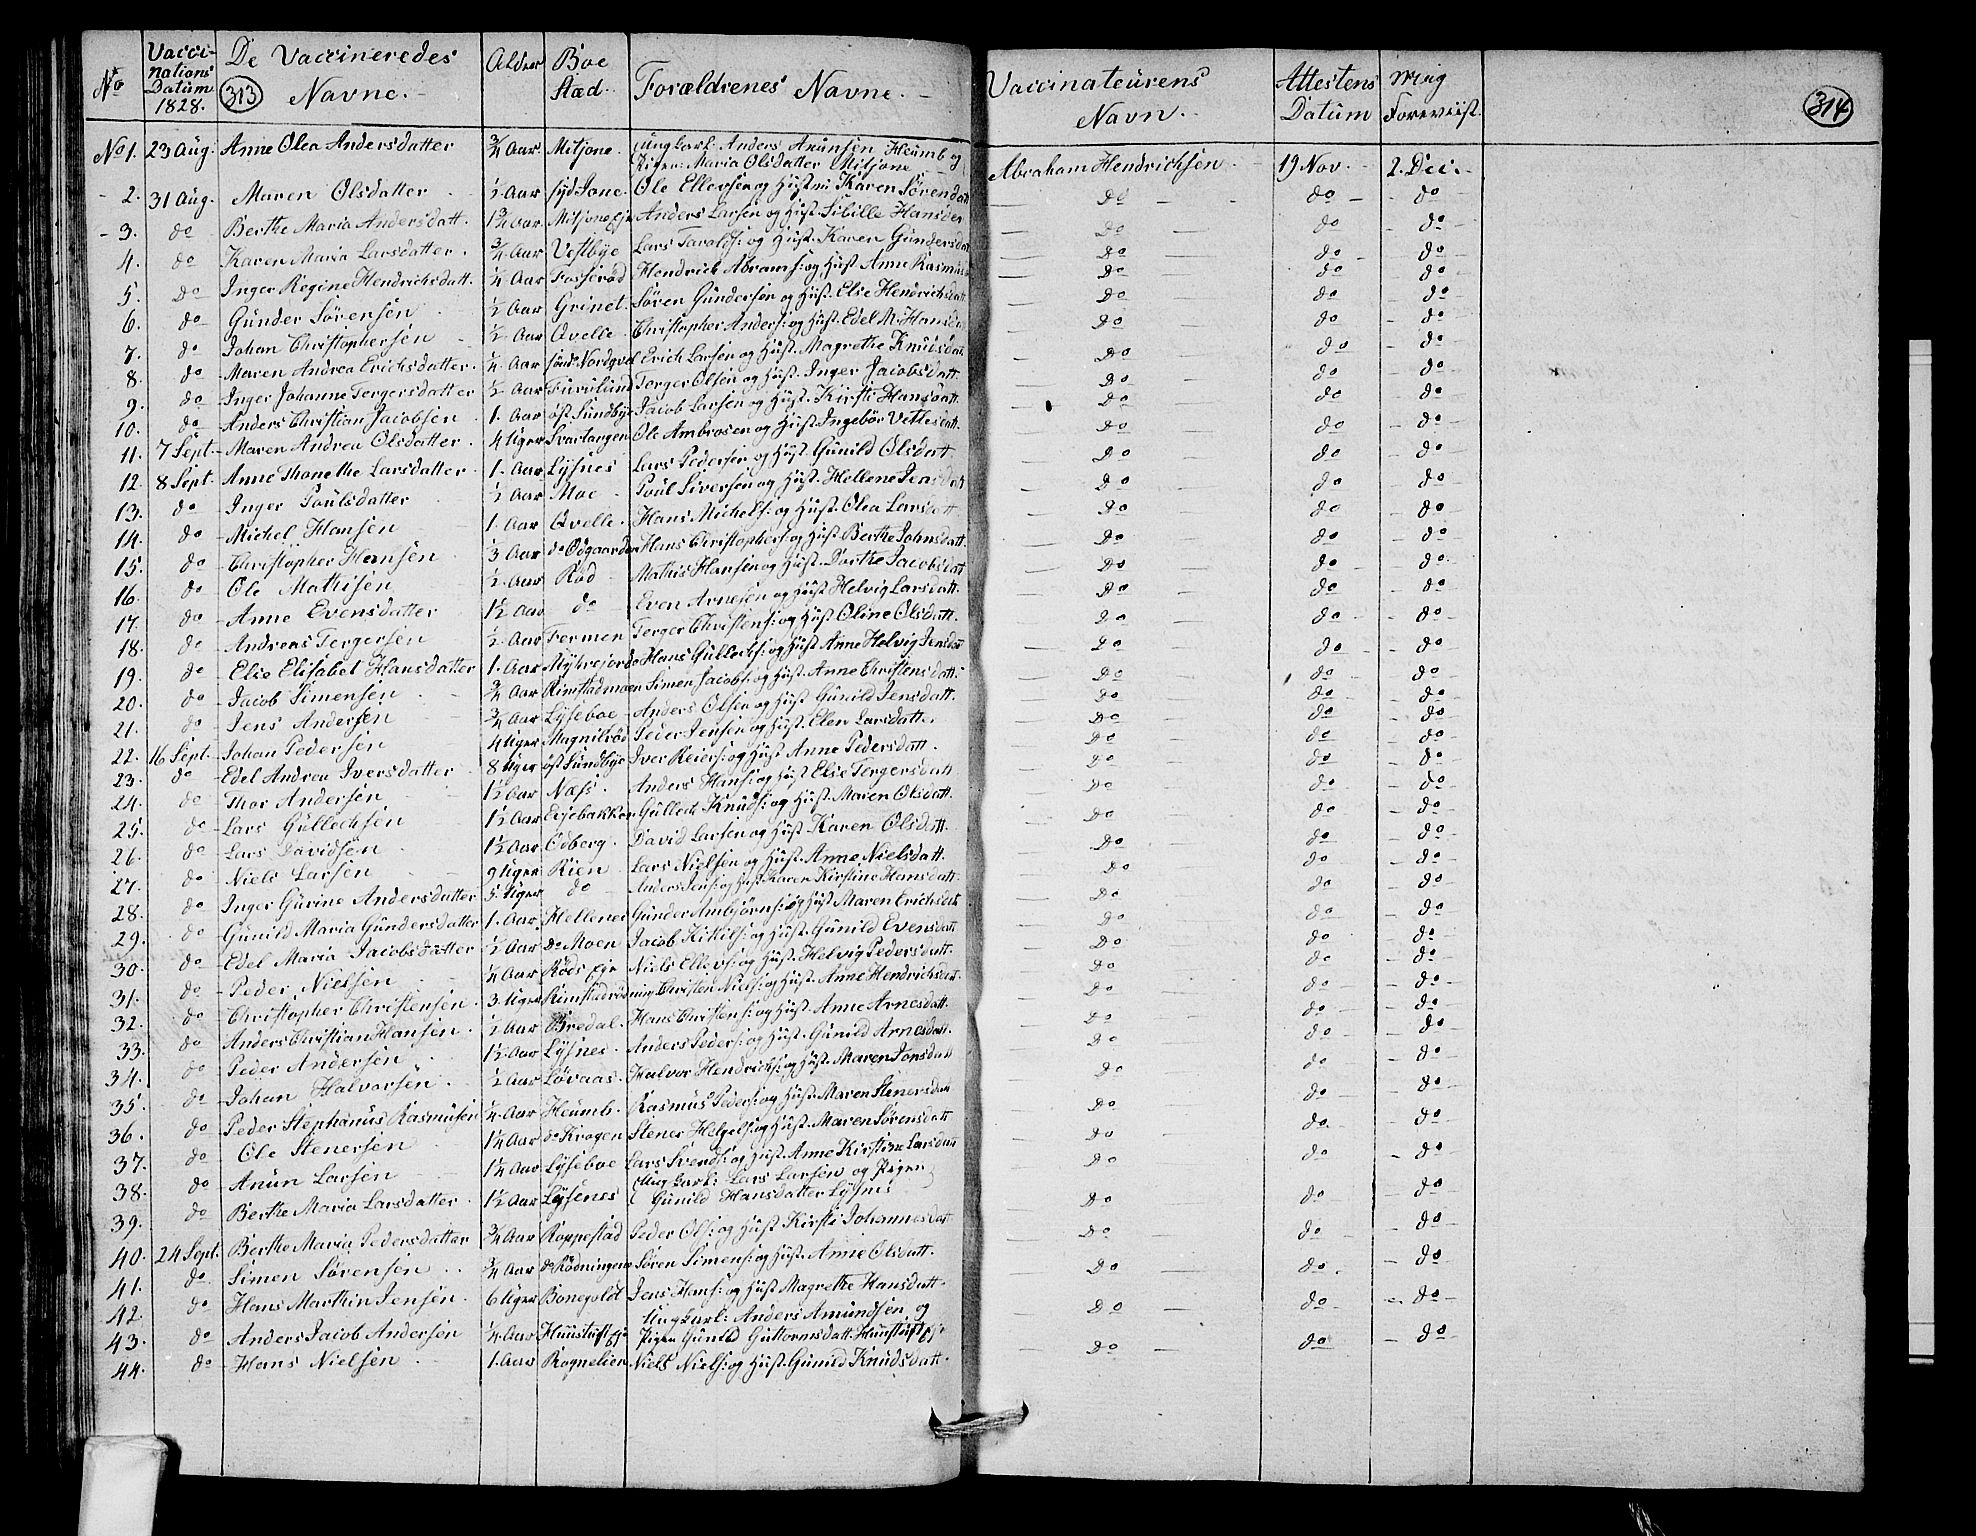 No | Vaccinations Datum 1828. | De Vaccineredes Navne. | Alder | Boe Stæd. | Forældrenes Navne. | Vaccinateurens Navn. | Attestens Datum | Mig Foreviist.
313
314
No 1. | 23 Aug. | Anne Olea Andersdatter | 3/4 Aar | Mitjone. | Ungkarl: Anders Anunsen Heumb og Pigen: Maria Olsdatter Mitjone | Abraham Hendrichsen | 19 Nov. | 2. Dec.
2. | 31 Aug. | Maren Olsdatter | 1/2 Aar | Syd Jone | Ole Ellevsen og Hust: Karen Sørensdatt | do | do | do
3. | do | Berthe Maria Andersdatt. | 1 3/4 Aar | Mitjone Eje | Anders Larsen og Hust. Sibille Hansda | do | do | do
4. | do | Karen Maria Larsdatter. | 3/4 Aar | Vestbye | Lars Taralds: og Hust. Karen Gundersdatt | do | do | do
5. | do | Inger Regine Hendrichsdatt. | 1/4 Aar | Fosserød | Hendrick Abrams: og Hust Anne Rasmus | do | do | do
6. | do | Gunder Sørensen | 1/2 Aar | Grinet. | Søren Gundersen og Hust. Else Hendrichsdatt | do | do | do
7. | do | Johan Christophersen | 1/2 Aar | Qvelle | Christopher Anders: og Hust. Edel M: Hansda | do | do | do
8. | do | Maren Andrea Erichsdatter. | 1/4 Aar | Nordqvel | Erich Larsen og Hust. Magrethe Knudsdatt | do | do | do
9. | do | Inger Johanne Tergersdatter | 1/2 Aar | Furulund | Terger Olsen og Hust. Inger Jacobsdatt. | do | do | do
10. | do | Anders Christian Jacobsen | 1. Aar | øst Sundbye | Jacob Larsen og Hust. Kirsti Hansdatt. | do | do | do
11. | 7 Sept. | Maren Andrea Olsdatter. | 4 Uger | Svartangen | Ole Ambrosen og Hust Ingebor Vettesdatt. | do | do | do
12. | 8 Sept. | Anne Thonethe Larsdatter | 1. Aar | Lysnes | Lars Pedersen og Hust. Gunild Olsdatt | do | do | do
13. | do | Inger Poulsdatter | 1/2 Aar | Moe | Poul Siversen og Hust. Hellene Jensdatt | do | do | do
14. | do | Michel Hansen | 1. Aar | Qvelle. | Hans Michels: og Hust. Olea Larsdatt | do | do | do
15. | do | Christopher Hansen | 3 Aar | do Odgaarden | Hans Christophers: og Hust Berthe Johnsdatt. | do | do | do
16. | do | Ole Mathisen | 1/2 Aar | Rød | Mathis Hansen og Hust. Dorthe Jacobsdatt | do | do | do
17. | do | Anne Evensdatter | 1 1/2 Aar | do | Even Arnesen og Hust Helvig Larsdatt. | do | do | do
18. | do | Andreas Tergersen | 1/2 Aar | Fermen | Terger Christens: og Hust Oline Olsdatt. | do | do | do
19. | do | Else Elisabet Hansdatter | 1. Aar | Myhrejorde | Hans Gullechs: og Hust Anne Helvig Jensdatt | do | do | do
20. | do | Jacob Simensen | 3/4 Aar | Rimstadmoen | Simen Jacobs: og Hust. Anne Christensdatt. | do | do | do
21. | do | Jens Andersen | 3/4 Aar | Lyseboe | Anders Olsen og Hust Gunild Jensdatt. | do | do | do
22. | 16 Sept. | Johan Pedersen | 4 Uger | Magnilrød | Peder Jensen og Hust. Elen Larsdatt. | do | do | do
23. | do | Edel Andrea Iversdatter | 8 Uger | øst Sundbye | Iver Reiers: og Hust Anne Pedersdatt. | do | do | do
24. | do | Thor Andersen | 1 1/2 Aar | Næss. | Anders Hans: og Hust Else Tergersdatt | do | do | do
25. | do | Lars Gullechsen | 1 1/2 Aar | Eijebakken | Gullech Knuds: og Hust. Maren Olsdatt. | do | do | do
26. | do | Lars Davidsen | 1 1/2 Aar | Odberg. | David Larsen og Hust. Karen Olsdatt. | do | do | do
27. | do | Niels Larsen | 9 Uger | Rien | Lars Nielsen og Hust. Anne Nielsdatt. | do | do | do
28. | do | Inger Gurine Andersdatter | 5 Uger | do | Anders Jens: og Hust Karen Kirstine Hansdatt. | do | do | do
29. | do | Gunild Maria Gundersdatter | 1. Aar. | Hellener | Gunder Ambjørns: og Hust Maren Erichsdatt | do | do | do
30. | do | Edel Maria Jacobsdatter | 1/2 Aar | do Moen | Jacob Kittils: og Hust. Gunild Evensdatt | do | do | do
31. | do | Peder Nielsen | 1/4 Aar | Røds Eje | Niels Ellevs: og Hust. Helvig Pedersdatt. | do | do | do
32. | do | Christopher Christensen | 3 Uger | Rimstadrødning | Christen Niels: og Hust. Anne Hendrichsdatt | do | do | do
33. | do | Anders Christian Hansen | 1/2 Aar | Bredal. | Hans Christens: og Hust. Anne Arnesdatt. | do | do | do
34. | do | Peder Andersen | 1 1/2 Aar | Lysnes. | Anders Peders: og Hust. Gunild Arnesdatt. | do | do | do
35. | do | Johan Halvorsen | 1/2 Aar | Løvaas | Halvor Hendrichs: og Hust. Maren Jonsdatt | do | do | do
36. | do | Peder Stephanus Rasmusen | 1/4 Aar | Heumb. | Rasmus Peders: og Hust. Maren Stenersdatt | do | do | do
37. | do | Ole Stenersen | 1 1/4 Aar | do Kragen | Stener Helgels: og Hust. Maren Sørensdatt | do | do | do
38. | do | Anun Larsen | 1 1/4 Aar | Lyseboe | Lars Svends: og Hust. Anne Kirstine Larsdatt | do | do | do
39. | do | Berthe Maria Larsdatter | 1 1/2 Aar | Lysenes | Ungkarl: Lars Larsen og Pigen Gunild Hansdatter Lysnes | do | do | do
40. | 24 Sept. | Berthe Maria Pedersdatter | 3/4 Aar | Roppestad | Peder Ols: og Hust Kirsti Johannesdatt | do | do | do
41. | do | Simen Sørensen | 3/4 Aar | do Rødningene | Søren Simens: og Hust. Anne Olsdatt. | do | do | do
42. | do | Hans Marthin Jensen | 6 Uger | Bonegolt | Jens Hans: og Hust Magrethe Hansdatt. | do | do | do
43. | do | Anders Jacob Andersen | 1/4 Aar | Huustuft Eje | Ungkarl: Anders Amundsen og Pigen Gunild Guttormsdatt. Huustuft Eje | do | do | do
44. | do | Hans Nielsen | 1. Aar | Rognelien | Niels Niels: og Hust. Gunild Knudsdatt. | do | do | do